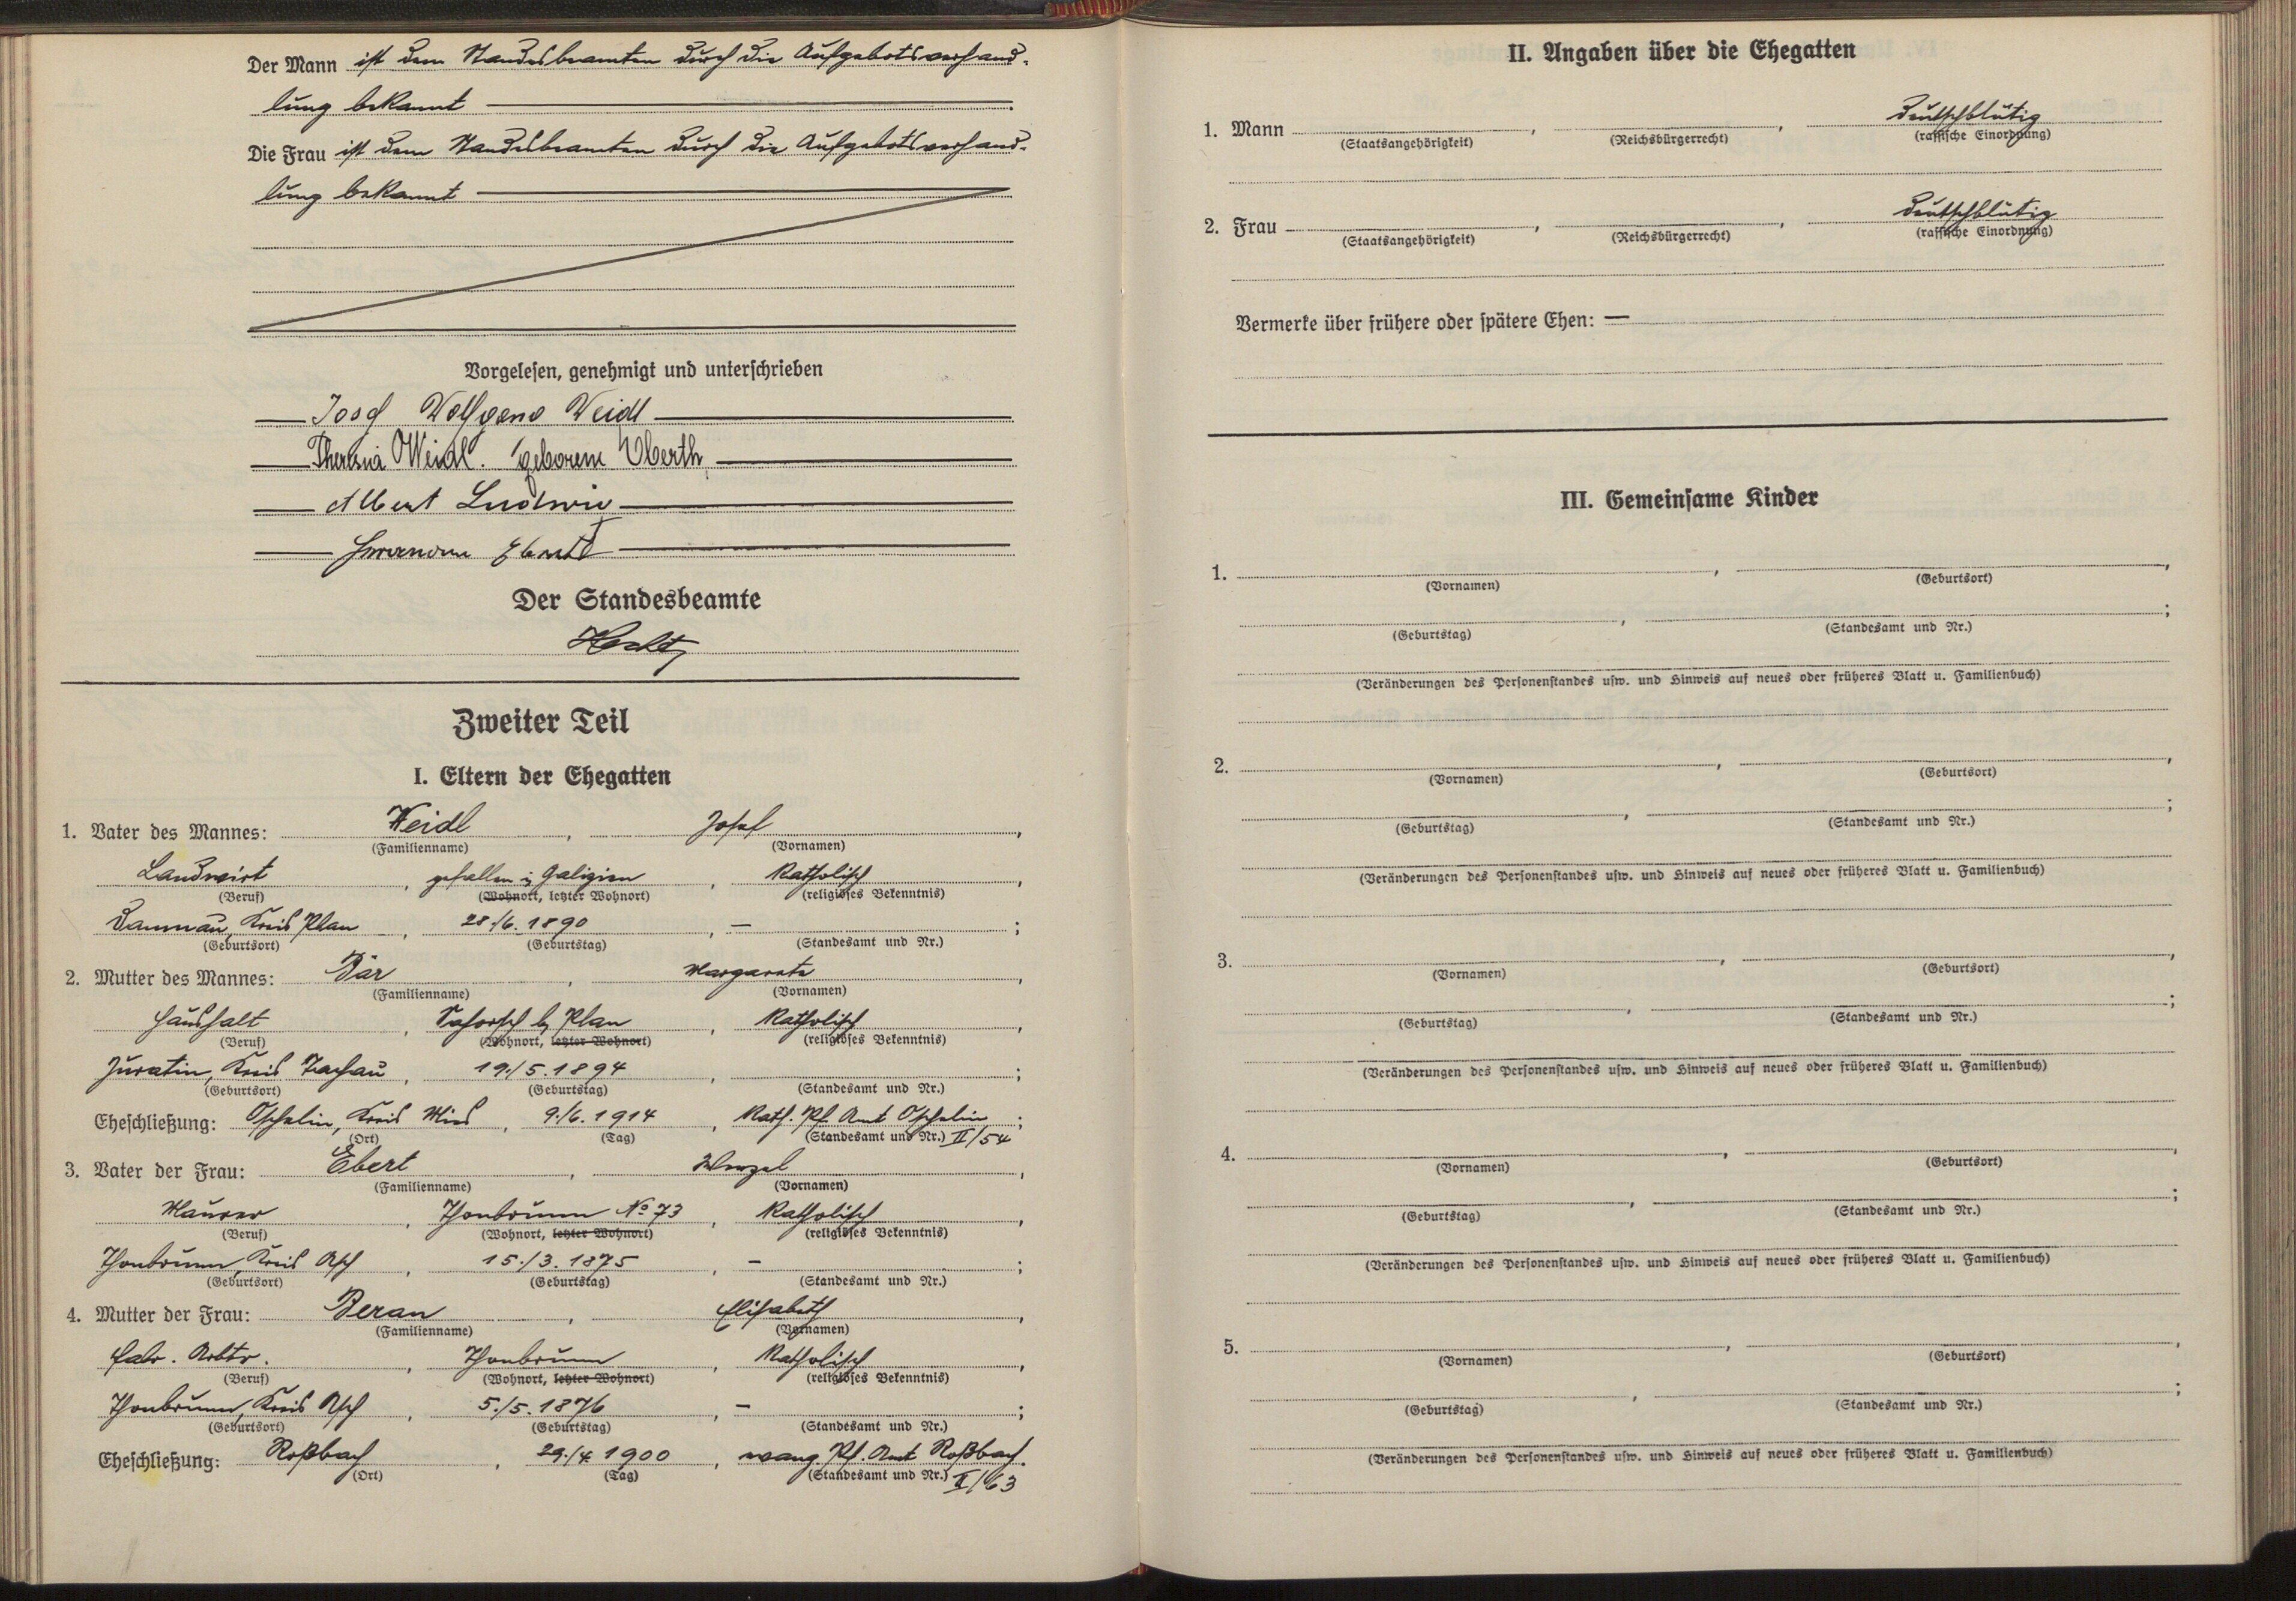 Der Mann ist dem Standesbeamten durch die Aufgebotsverhand-
lung bekannt
Die Frau ist dem Standesbeamten durch die Aufgebotsverhand-
lung bekannt
Vorgelesen, genehmigt und unterschrieben
Josef Wolfgang Weidl
Theresia Weidl. geborene Eberth
Albert Ludwig
Hermann Ebert
Der Standesbeamte
Zweiter Teil
I. Eltern der Ehegatten
1. Vater des Mannes: Weidl, Josef,
(Familienname) (Vornamen)
Landwirt, gefallen in Galizien, Katholisch,
(Beruf) (Wohnort, letzter Wohnort) (religiöses Bekenntnis)
Damnau, Kreis Plan, 28./6. 1890, — ;
(Geburtsort) (Geburtstag) (Standesamt und Nr.)
2. Mutter des Mannes: Bär, Margarete,
(Familienname) (Vornamen)
Haushalt, b. Plan, Katholisch,
(Beruf) (Wohnort, letzter Wohnort) (religiöses Bekenntnis)
Juratin, Kreis Tachau, 19./5. 1894, ;
(Geburtsort) (Geburtstag) (Standesamt und Nr.)
Eheschließung: Oschelin, Kreis Mies, 9./6. 1914, Kath. Pf. Amt Oschelin ;
(Ort) (Tag) (Standesamt und Nr.) II/54
3. Vater der Frau: Ebert, Wenzel,
(Familienname) (Vornamen)
Maurer, Thonbrunn No 73, Katholisch,
(Beruf) (Wohnort, letzter Wohnort) (religiöses Bekenntnis)
Thonbrunn, Kreis Asch, 15./3. 1875, — ;
(Geburtsort) (Geburtstag) (Standesamt und Nr.)
4. Mutter der Frau: Beran, Elisabeth,
(Familienname) (Vornamen)
Fabr. Arbtr., Thonbrunn, Katholisch,
(Beruf) (Wohnort, letzter Wohnort) (religiöses Bekenntnis)
Thonbrunn, Kreis Asch, 5./5. 1876, — ;
(Geburtsort) (Geburtstag) (Standesamt und Nr.)
Eheschließung: Roßbach, 29./4. 1900, evang. Pf. Amt Roßbach.
(Ort) (Tag) (Standesamt und Nr.) II/63
II. Angaben über die Ehegatten
1. Mann , , deutschblütig
(Staatsangehörigkeit) (Reichsbürgerrecht) (rassische Einordnung)
2. Frau — , , deutschblütig
(Staatsangehörigkeit) (Reichsbürgerrecht) (rassische Einordnung)
Vermerke über frühere oder spätere Ehen: —
III. Gemeinsame Kinder
1. , ,
(Vornamen) (Geburtsort)
, ;
(Geburtstag) (Standesamt und Nr.)
(Veränderungen des Personenstandes usw. und Hinweis auf neues oder früheres Blatt u. Familienbuch)
2. , ,
(Vornamen) (Geburtsort)
, ;
(Geburtstag) (Standesamt und Nr.)
(Veränderungen des Personenstandes usw. und Hinweis auf neues oder früheres Blatt u. Familienbuch)
3. , ,
(Vornamen) (Geburtsort)
, ;
(Geburtstag) (Standesamt und Nr.)
(Veränderungen des Personenstandes usw. und Hinweis auf neues oder früheres Blatt u. Familienbuch)
4. , ,
(Vornamen) (Geburtsort)
, ;
(Geburtstag) (Standesamt und Nr.)
(Veränderungen des Personenstandes usw. und Hinweis auf neues oder früheres Blatt u. Familienbuch)
5. , ,
(Vornamen) (Geburtsort)
, ;
(Geburtstag) (Standesamt und Nr.)
(Veränderungen des Personenstandes usw. und Hinweis auf neues oder früheres Blatt u. Familienbuch)